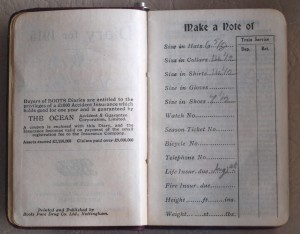 Diary for 1915
Buyers of BOOTS Diaries are entitled to the
privileges of a £1000 Accident Insurance which
holds good for one year and is guaranteed by
THE OCEAN Accident & Guarantee
Corporation, Limited
A coupon is enclosed with this Diary, and the
Insurance becomes valid on payment of the small
registration fee to the Insurance Company.
Printed and Published by
Boots Pure Drug Co. Ltd., Nottingham.
Make a Note of
Train Service
Dep. Arr.
Size in Hats
Size in Collars
Size in Shirts
Size in Gloves
Size in Shoes
Watch No.
Season Ticket No.
Bicycle No.
Telephone No.
Life Insur. due Aug
Fire Insur. due
Height ft. ins.
Weight st. lbs.